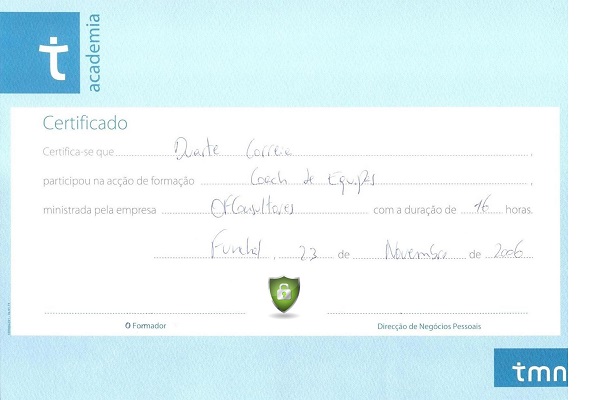 t
academia
Certificado
Certifica-se que Duarte Correia,
participou na acção de formação Coach de Equipas,
ministrada pela empresa com a duração de 16 horas.
Funchal, 23 de Novembro de 2006
O Formador
Direcção de Negócios Pessoais
tmn